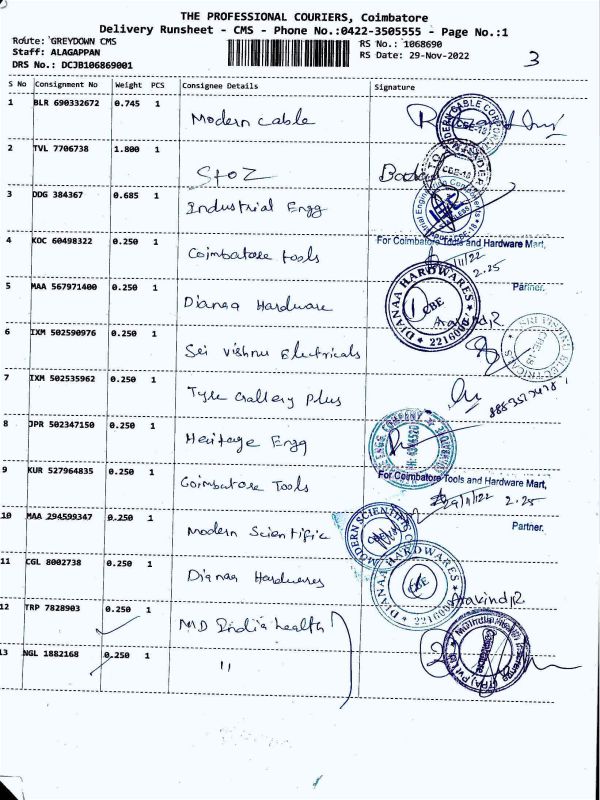 THE PROFESSIONAL COURIERS, Coimbatore
Delivery Runsheet - CMS - Phone No.:0422-3505555 - Page No.:1
Route: GREYDOWN CMS
Staff: ALAGAPPAN
DRS No.: DCJB106869001
RS No.: 1068690
RS Date: 29-Nov-2022
3
S No Consignment No Weight PCS Consignee Details Signature
1 BLR 690332672 0.745 1 Modern cable
2 TVL 7706738 1.800 1 StoZ
3 DDG 384367 0.685 1 Industrial Engg
4 KOC 60498322 0.250 1 Coimbatore tools
For Coimbatore Tools and Hardware Mart,
2.25
Partner.
5 MAA 567971400 0.250 1 Dianaa Hardware
DIANAA HARDWARES CBE
Aravind.R
6 IXM 502590976 0.250 1 Sri Vishnu Electricals
SRI VISHNU ELECTRICALS
7 IXM 502535962 0.250 1 Tyre Gallery Plus
8 JPR 502347150 0.250 1 Heritage Engg
9 KUR 527964835 0.250 1 Coimbatore Tools
For Coimbatore Tools and Hardware Mart,
29/11/22 2.25
Partner.
10 MAA 294599347 0.250 1 Modern Scientific
MODERN SCIENTIFIC
11 CGL 8002738 0.250 1 Dianaa Hardwares
DIANAA HARDWARES CBE
Aravind.R
12 TRP 7828903 0.250 1 MD India health
13 NGL 1882168 0.250 1 "